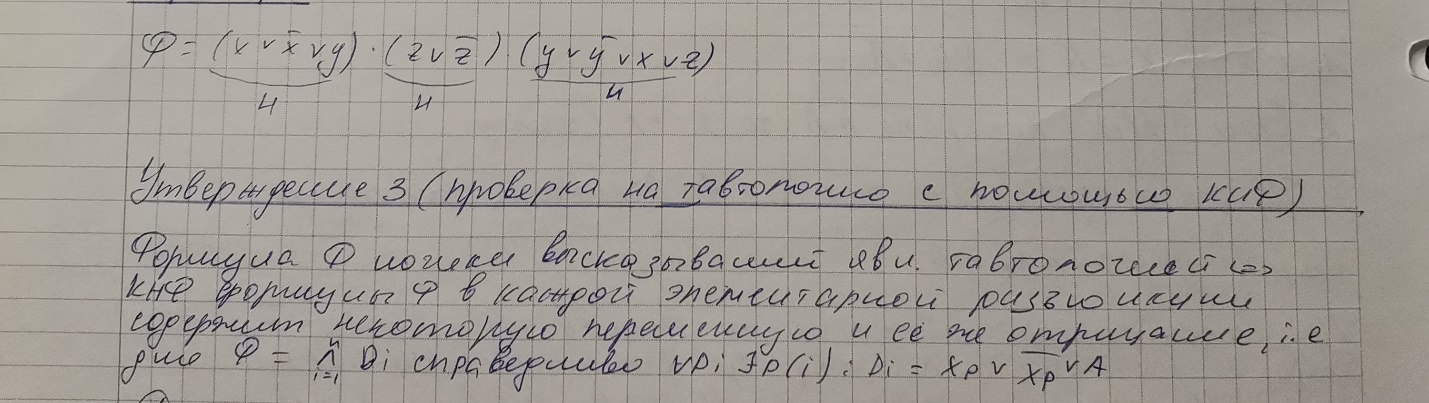 Ф = (x ∨ x̄ ∨ y) · (z ∨ z̄) · (y ∨ ȳ ∨ x ∨ z)
И И И
Утверждение 3 (проверка на тавтологию с помощью КНФ)
Формула Ф логики высказываний явл. тавтологией <=>
КНФ формулы Ф в каждой элементарной дизъюнкции
содержит некоторую переменную и её же отрицание, т.е
для Ф = ⋀ⁿᵢ₌₁ Di справедливо ∀Di ∃p(i): Di = Xp ∨ X̄p ∨ A